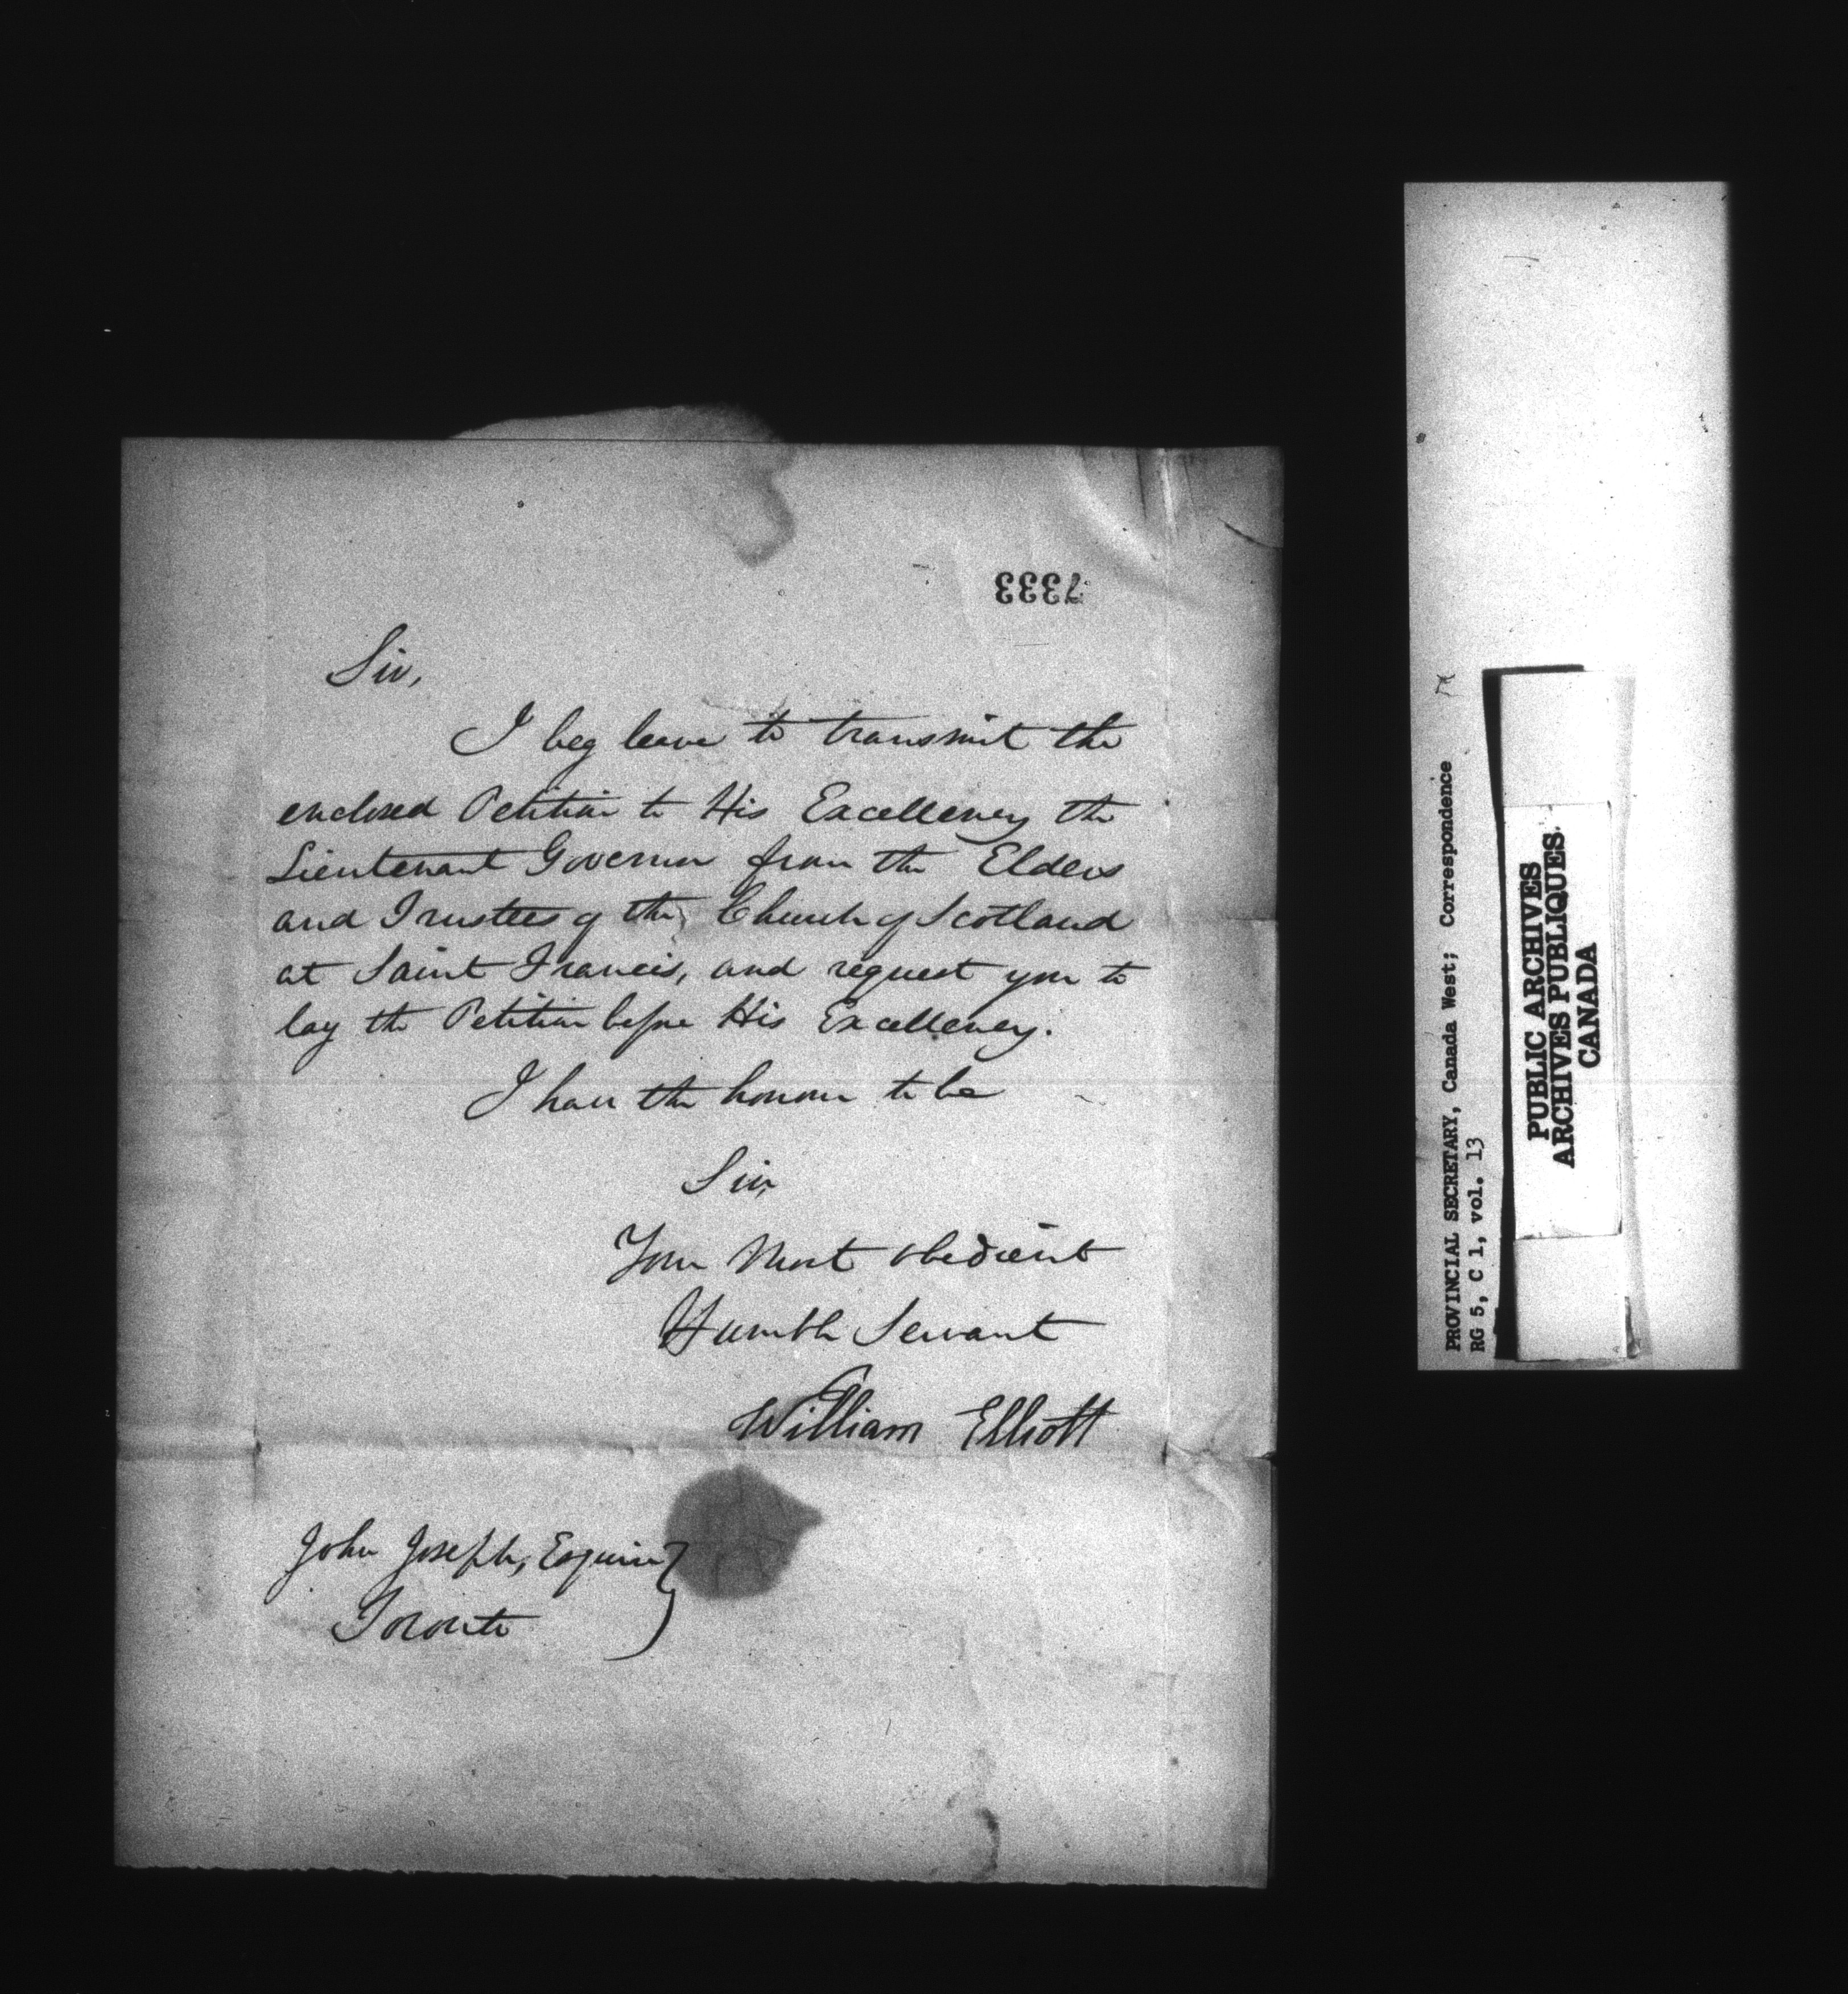 7333
Sir,
I beg leave to transmit the
enclosed Petition to His Excellency the
Lieutenant Governor from the Elders
and Trustees of the Church of Scotland
at Saint Francis, and request you to
lay the Petition before His Excellency.
I have the honour to be
Sir,
Your Most obedient
Humble Servant
William Elliott
John Joseph, Esquire
Toronto
PROVINCIAL SECRETARY, Canada West; Correspondence
RG 5, C 1, vol. 13
PUBLIC ARCHIVES
ARCHIVES PUBLIQUES
CANADA